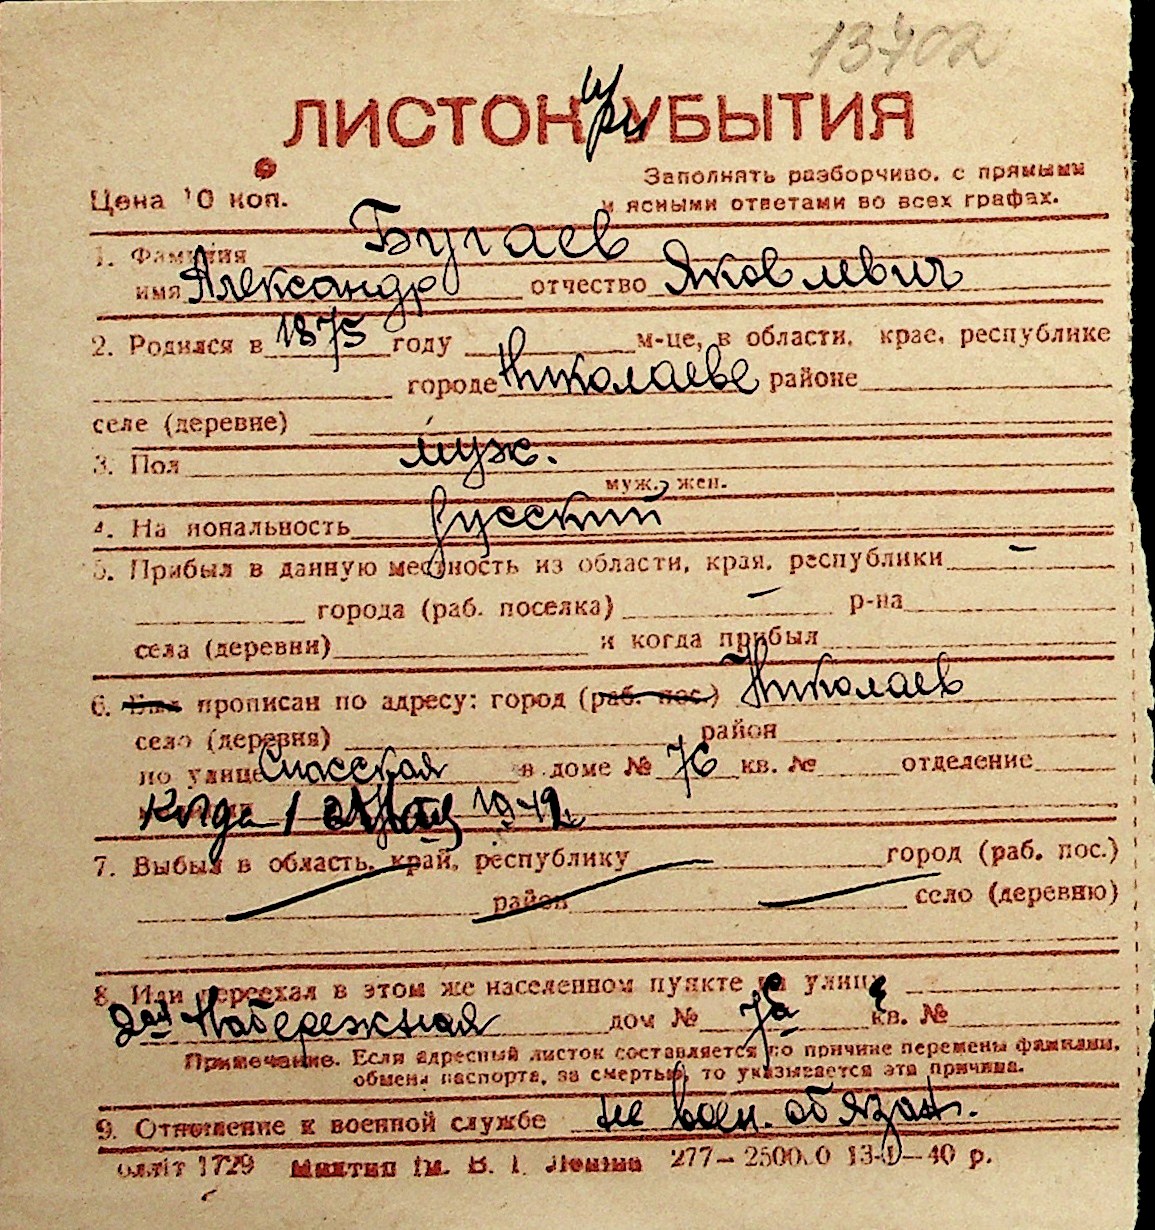 13402
ЛИСТОК при УБЫТИЯ
Цена 10 коп.
Заполнять разборчиво, с прямыми
и ясными ответами во всех графах.
1. Фамилия Бугаев
имя Александр отчество Яковлевич
2. Родился в 1875 году м-це, в области, крае, республике
городе Николаеве районе
селе (деревне)
3. Пол муж.
муж., жен.
4. Национальность русский
5. Прибыл в данную местность из области, края, республики —
города (раб. поселка) — р-на
села (деревни) и когда прибыл
6. Был прописан по адресу: город (раб. пос.) Николаев
село (деревня) район
по улице Спасская в доме № 76 кв. № отделение
Когда 1 1942
7. Выбыл в область, край, республику город (раб. пос.)
район село (деревню)
8. Или переехал в этом же населенном пункте на улице
2ая Набережная дом № 7а кв. №
Примечание. Если адресный листок составляется по причине перемены фамилии,
обмена паспорта, за смертью, то указывается эта причина.
9. Отношение к военной службе не воен. обязан.
1729 Миктип ім. В. І. Леніна 277—25000 13-І—40 р.